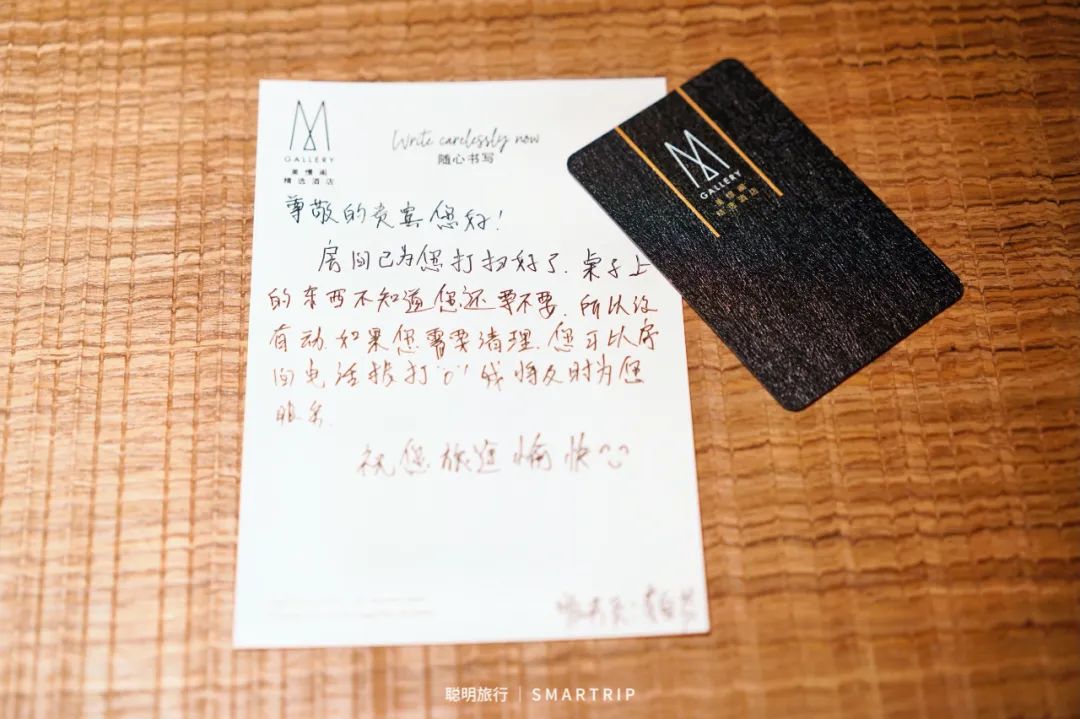 M
GALLERY
美憬阁
精选酒店
Write carelessly now
随心书写
尊敬的贵宾您好!
房间已为您打扫好了.桌子上
的东西不知道您还要不要.所以没
有动.如果您需要清理.您可以房
间电话拨打“0”我将及时为您
服务.
祝您旅途愉快
服务员:
M
GALLERY
美憬阁
精选酒店
聪明旅行 | SMARTRIP